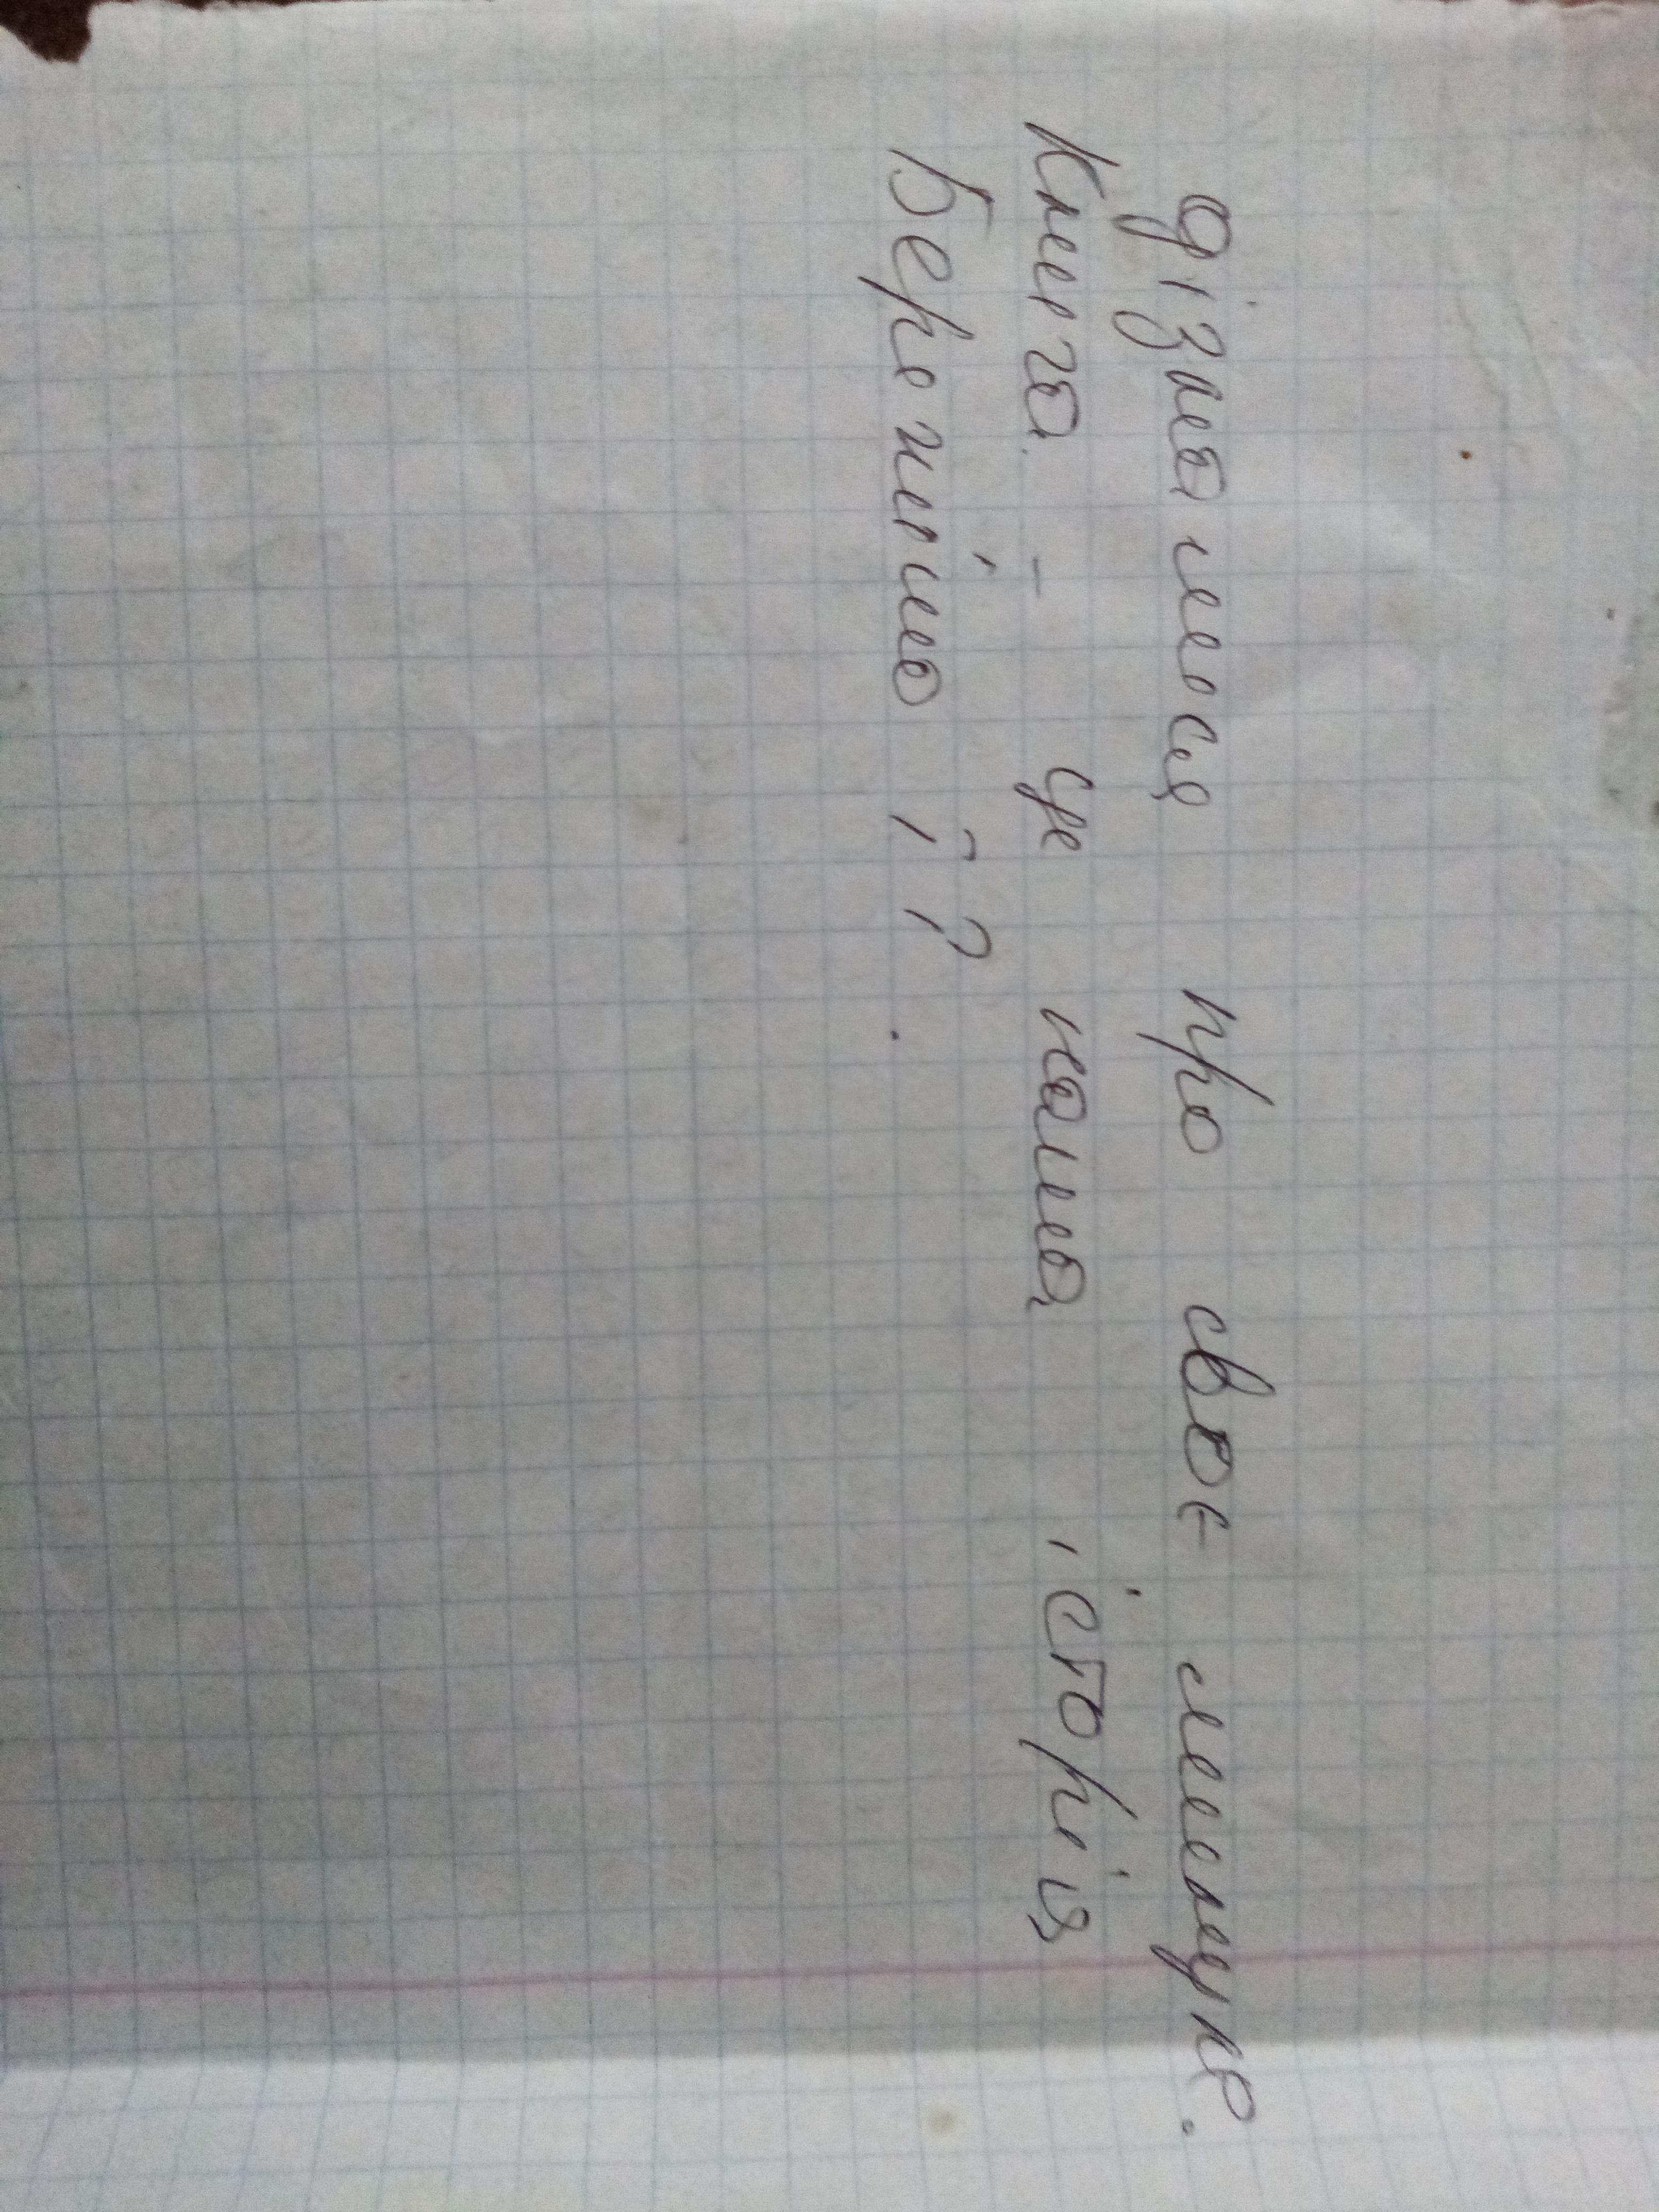 дізналися про своє минуле.
Книга - це наша історія
Бережімо її.